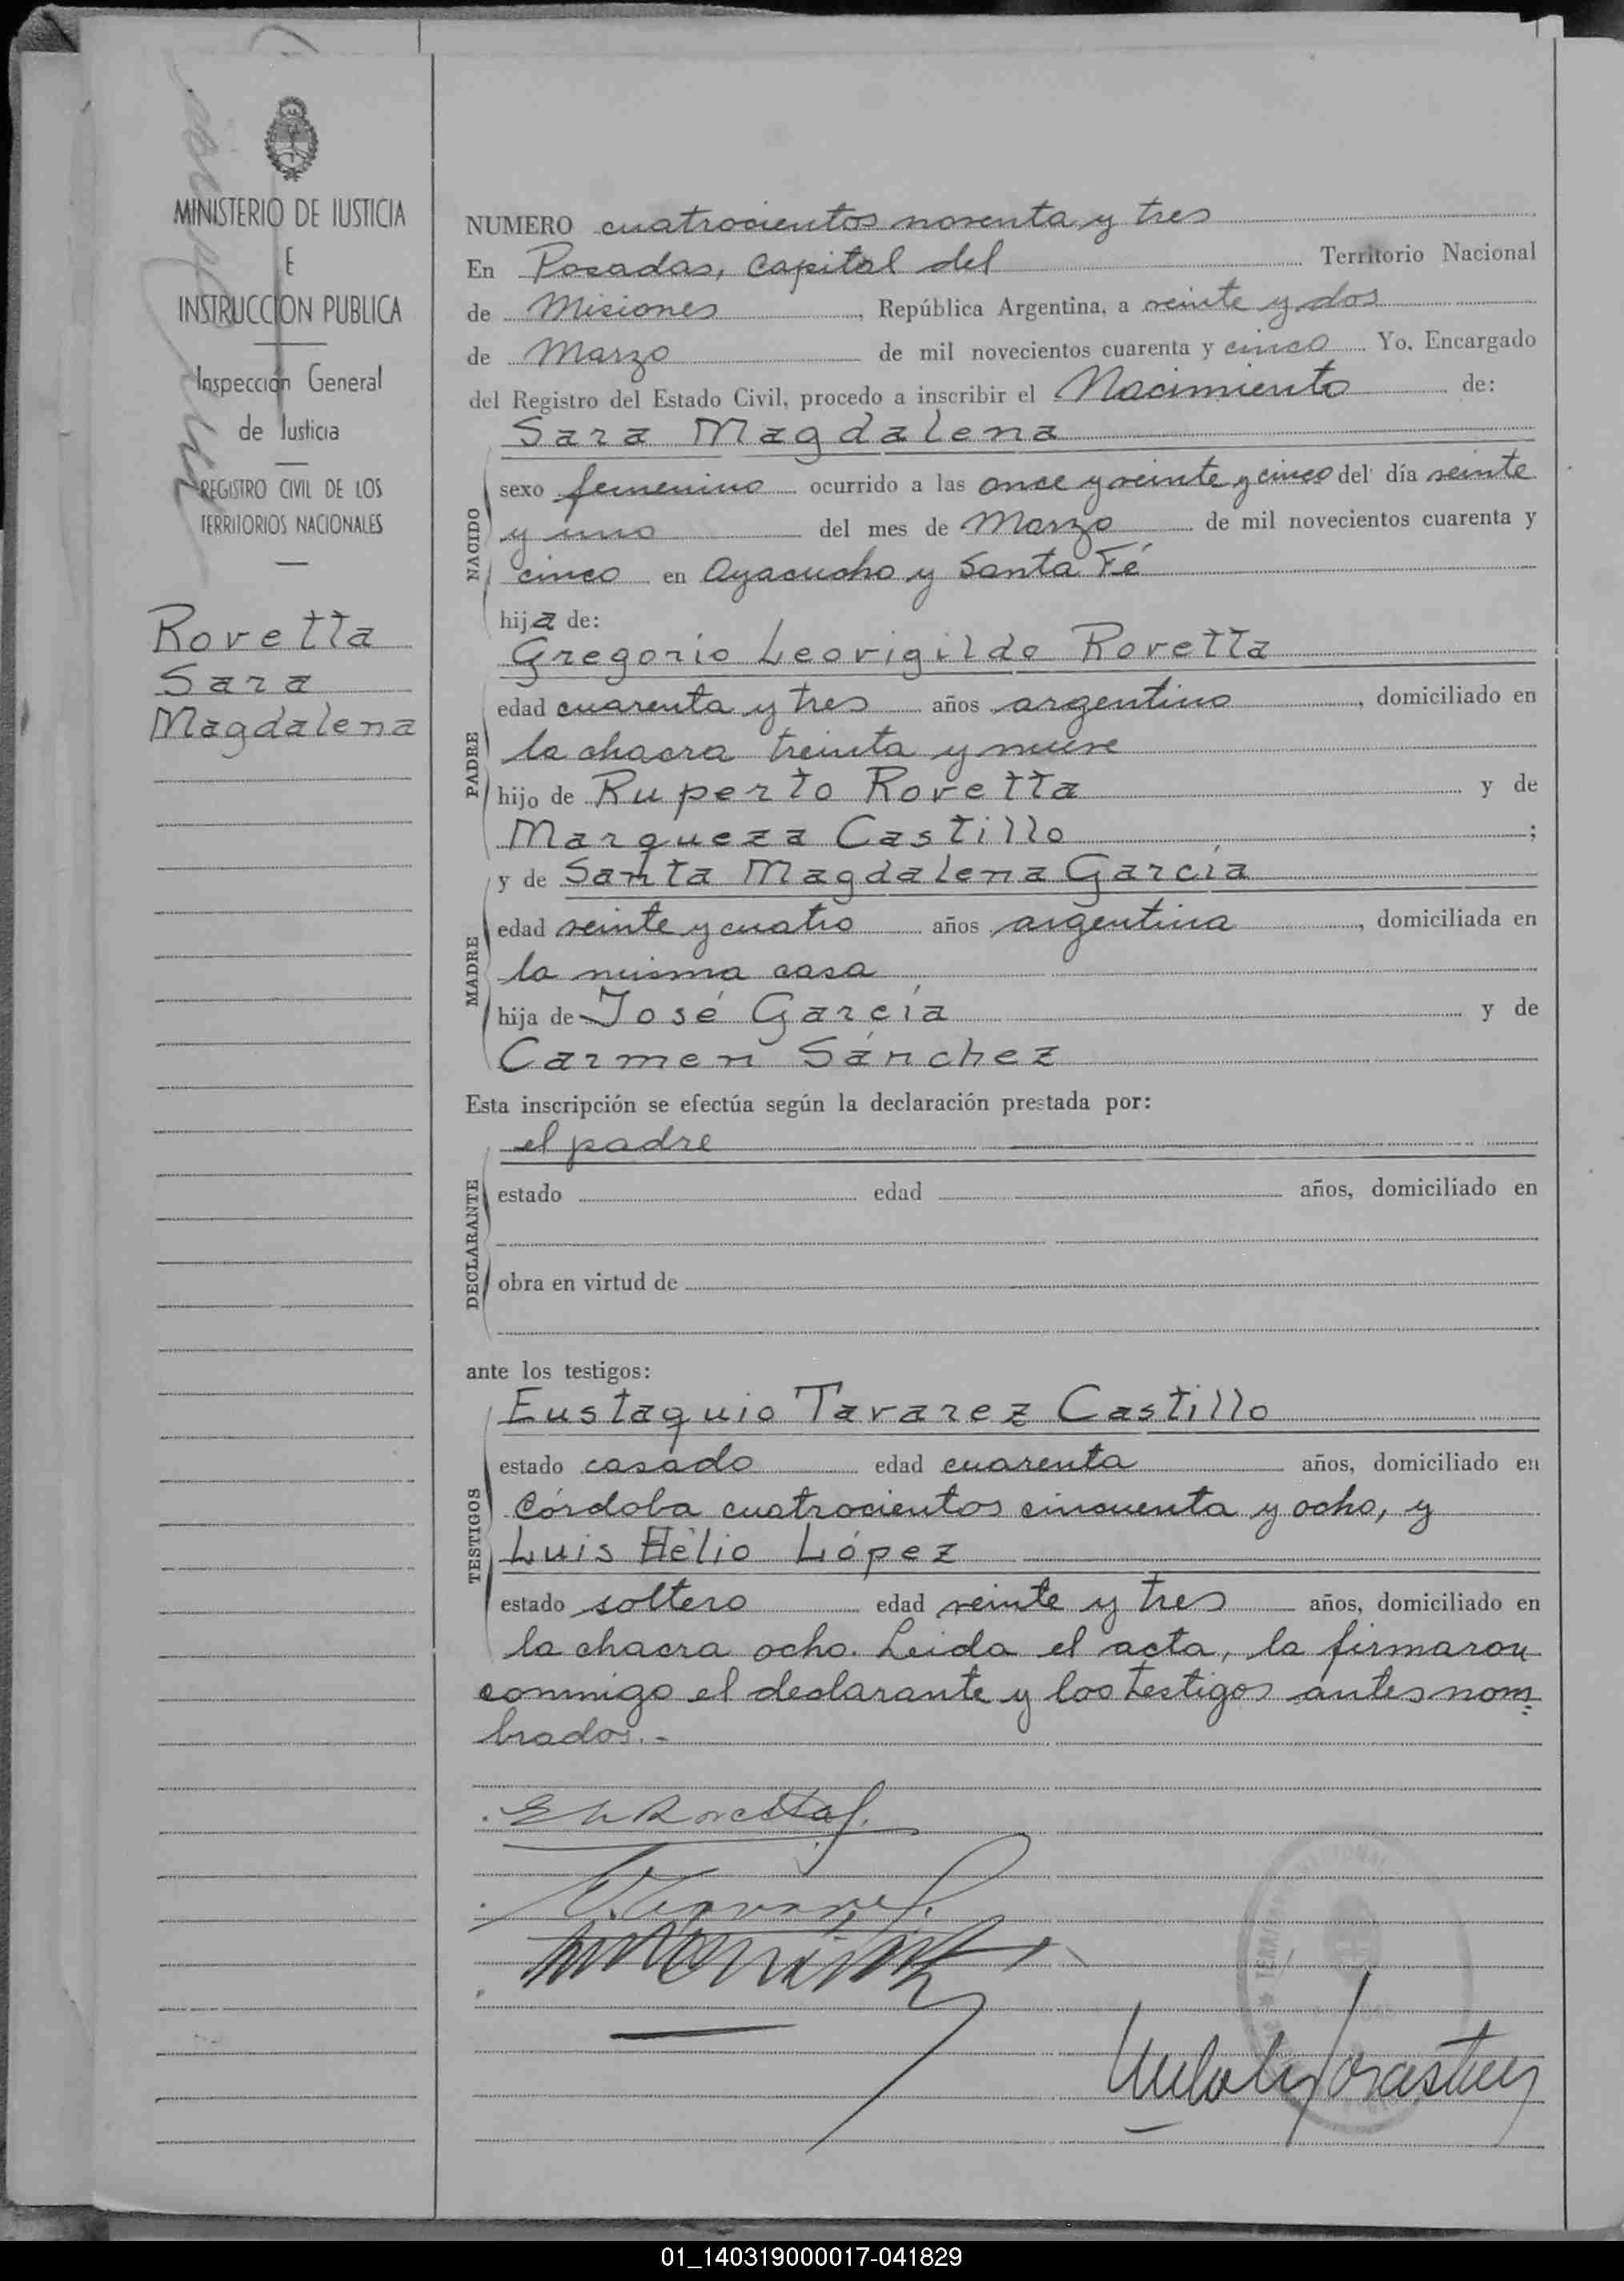 MINISTERIO DE JUSTICIA
E
INSTRUCCION PUBLICA
Inspección General
de Justicia
REGISTRO CIVIL DE LOS
TERRITORIOS NACIONALES
Rovetta
Sara
Magdalena
NUMERO cuatrocientos noventa y tres
En Posadas, Capital del Territorio Nacional
de Misiones, República Argentina, a veinte y dos
de Marzo de mil novecientos cuarenta y cinco Yo, Encargado
del Registro del Estado Civil, procedo a inscribir el Nacimiento de:
Sara Magdalena
NACIDO
sexo femenino ocurrido a las once y veinte y cinco del día veinte
y uno del mes de Marzo de mil novecientos cuarenta y
cinco en Ayacucho y Santa Fé
hija de:
Gregorio Leovigildo Rovetta
PADRE
edad cuarenta y tres años argentino, domiciliado en
la chacra treinta y nueve
hijo de Ruperto Rovetta y de
Marqueza Castillo;
y de Santa Magdalena García
MADRE
edad veinte y cuatro años argentina, domiciliada en
la misma casa
hija de José García y de
Carmen Sánchez
Esta inscripción se efectúa según la declaración prestada por:
el padre
DECLARANTE
estado edad años, domiciliado en
obra en virtud de
ante los testigos:
Eustaquio Tavarez Castillo
TESTIGOS
estado casado edad cuarenta años, domiciliado en
Córdoba cuatrocientos cincuenta y ocho, y
Luis Hélio López
estado soltero edad veinte y tres años, domiciliado en
la chacra ocho. Leida el acta, la firmaron
conmigo el declarante y los testigos antes nom=
brados.-
01_140319000017-041829